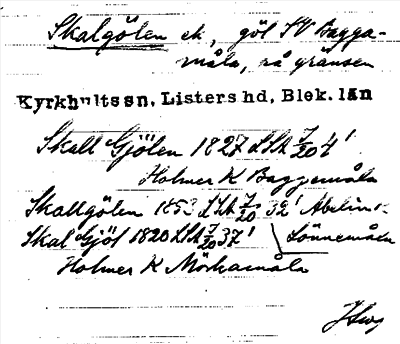 Skalgölen ek, göl SV Bagga-
måla, på gränsen
Kyrkhultssn, Listers hd, Blek. län
Skall Gjölen 1827 LSA 7/20 4'
Holmer K Baggemåla
Skallgölen 1853 LSA 7/20 32' Abelin
Skal Gjöl 1820 LSA 7/20 37' Lönnemåla
Holmer K Mörkamåla